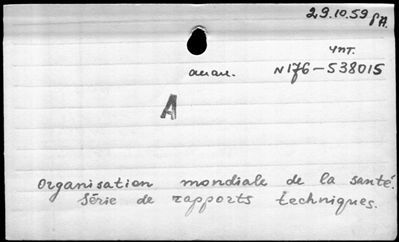 29.10.59
чит.
N176-538015
A
Organisation mondiale de la santé.
Série de rapports techniques.